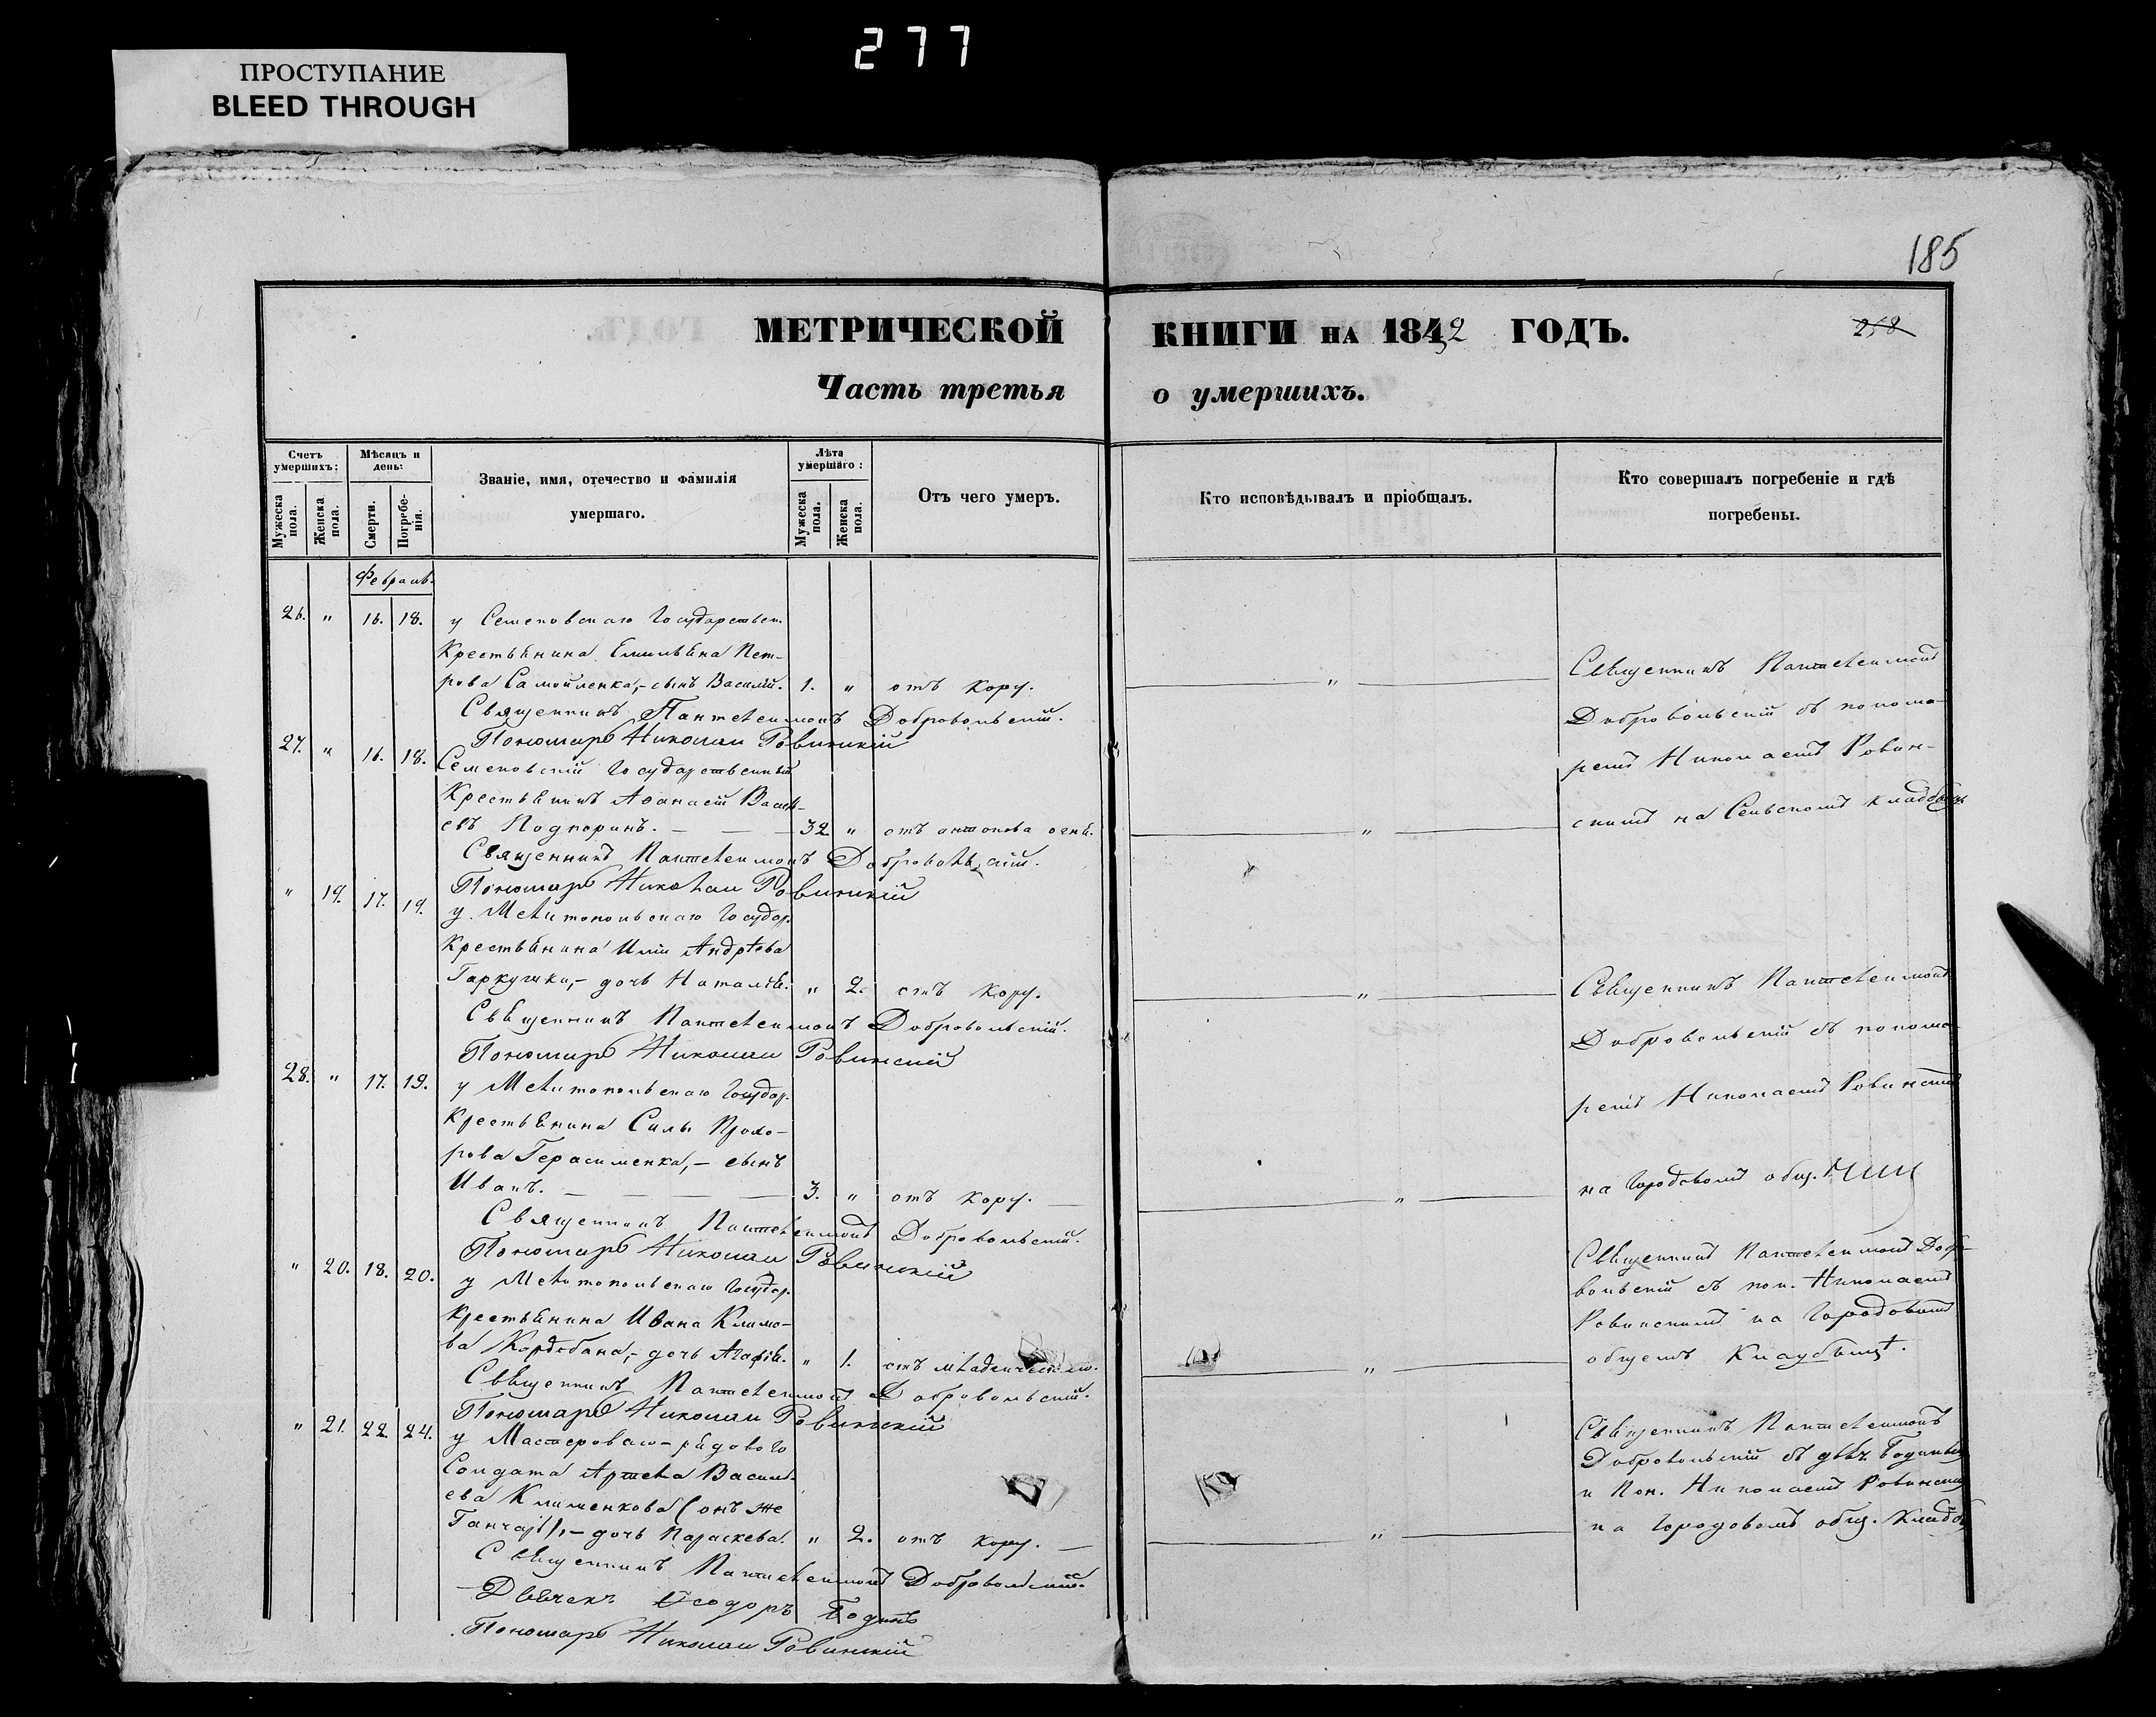 277
ПРОСТУПАНИЕ
BLEED THROUGH
185
МЕТРИЧЕСКОЙ КНИГИ НА 1842 ГОДЪ.
258
Часть третья о умершихъ.
Счетъ умершихъ:
Мужеска пола.
Женска пола.
Мѣсяцъ и день:
Смерти.
Погребенія.
Званіе, имя, отечество и фамилія умершаго.
Лѣта умершаго:
Мужеска пола.
Женска пола.
Отъ чего умеръ.
Кто исповѣдывалъ и пріобщалъ.
Кто совершалъ погребеніе и гдѣ погребены.
Февраль
26. " 16. 18. у Семеновскаго Государствен.
Крестьянина Емильяна Пет-
рова Самойленка,- сынъ Василій. 1. " отъ кору. "
Священникъ Пантелеимонъ Добровольскій.
Пономаръ Николай Ровинскій
Священникъ Пантелеимонъ
Добровольскій съ понома-
ремъ Николаемъ Ровин-
скимъ на Сельскомъ
27. " 16. 18. Семеновскій Государственный
Крестьянинъ Аѳанасій Василь-
евъ Подпоринъ. 32 " отъ антонова огня. "
Священникъ Пантелеимонъ Добровольскій.
Пономаръ Николай Ровинскій
" 19. 17. 19. у Мелитопольскаго Государ.
Крестьянина Иліи Андрѣева
Гаркушки,- дочь Наталія. " 2. отъ кору. "
Священникъ Пантелеимонъ Добровольскій.
Пономаръ Николай Ровинскій
Священникъ Пантелеимонъ
Добровольскій съ понома-
ремъ Николаемъ Ровинскимъ
на Городовомъ общ.
28. " 17. 19. у Мелитопольскаго Государ.
Крестьянина Силы Прохо-
рова Герасименка,- сынъ
Иванъ. 3. " отъ кору. "
Священникъ Пантелеимонъ Добровольскій.
Пономаръ Николай Ровинскій
" 20. 18. 20. у Мелитопольскаго Государ.
Крестьянина Ивана Климо-
ва - дочь Агафія. " 1. отъ младенческаго. "
Священникъ Пантелеимонъ Добровольскій.
Пономаръ Николай Ровинскій
Священникъ Пантелеимонъ Добро-
вольскій съ пон. Николаемъ
Ровинскимъ на Городовомъ
общемъ Кладбищѣ.
" 21. 22. 24. у Мастероваго-рядоваго
Солдата Артема Василь-
ева Клименкова (онъ же
- дочь Параскева. " 2. отъ кору. "
Священникъ Пантелеимонъ Добровольскій.
Дьячекъ Ѳеодоръ Годинъ
Пономаръ Николай Ровинскій
Священникъ Пантелеимонъ
Добровольскій съ дьяч.
и Пон. Николаемъ Ровинским
на Городовомъ общ. Кладб.